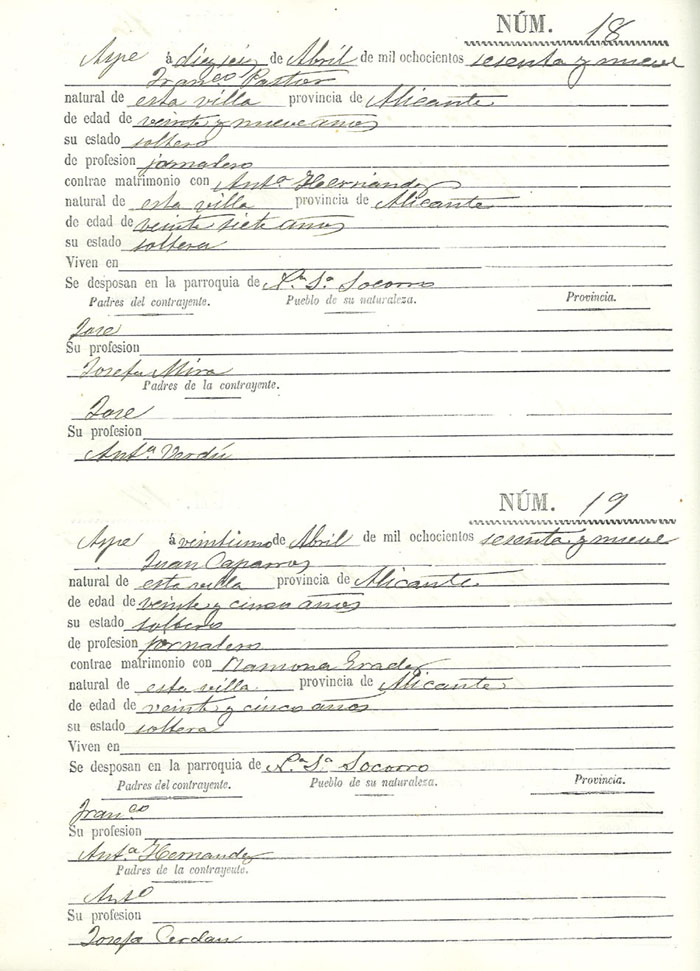 NÚM. 18
Aspe á diez seis de Abril de mil ochocientos sesenta y nueve
Franco Pastor
natural de esta villa provincia de Alicante
de edad de veinte y nueve años
su estado soltero
de profesion jornalero
contrae matrimonio con Anta Hernandez
natural de esta villa provincia de Alicante
de edad de veinte siete años
su estado soltera
Viven en
Se desposan en la parroquia de N.a S.a Socorro
Padres del contrayente. Pueblo de su naturaleza. Provincia.
Jose
Su profesion
Josefa Mira
Padres de la contrayente.
Jose
Su profesion
Ant.a Verdú
NÚM. 19
Aspe á veintiuno de Abril de mil ochocientos sesenta y nueve
Juan Caparros
natural de esta villa provincia de Alicante
de edad de veinte y cinco años
su estado soltero
de profesion jornalero
contrae matrimonio con Ramona
natural de esta villa provincia de Alicante
de edad de veinte y cinco años
su estado soltera
Viven en
Se desposan en la parroquia de N.a S.a Socorro
Padres del contrayente. Pueblo de su naturaleza. Provincia.
Franco
Su profesion
Ant.a Hernandez
Padres de la contrayente.
Anto
Su profesion
Josefa Cerdan